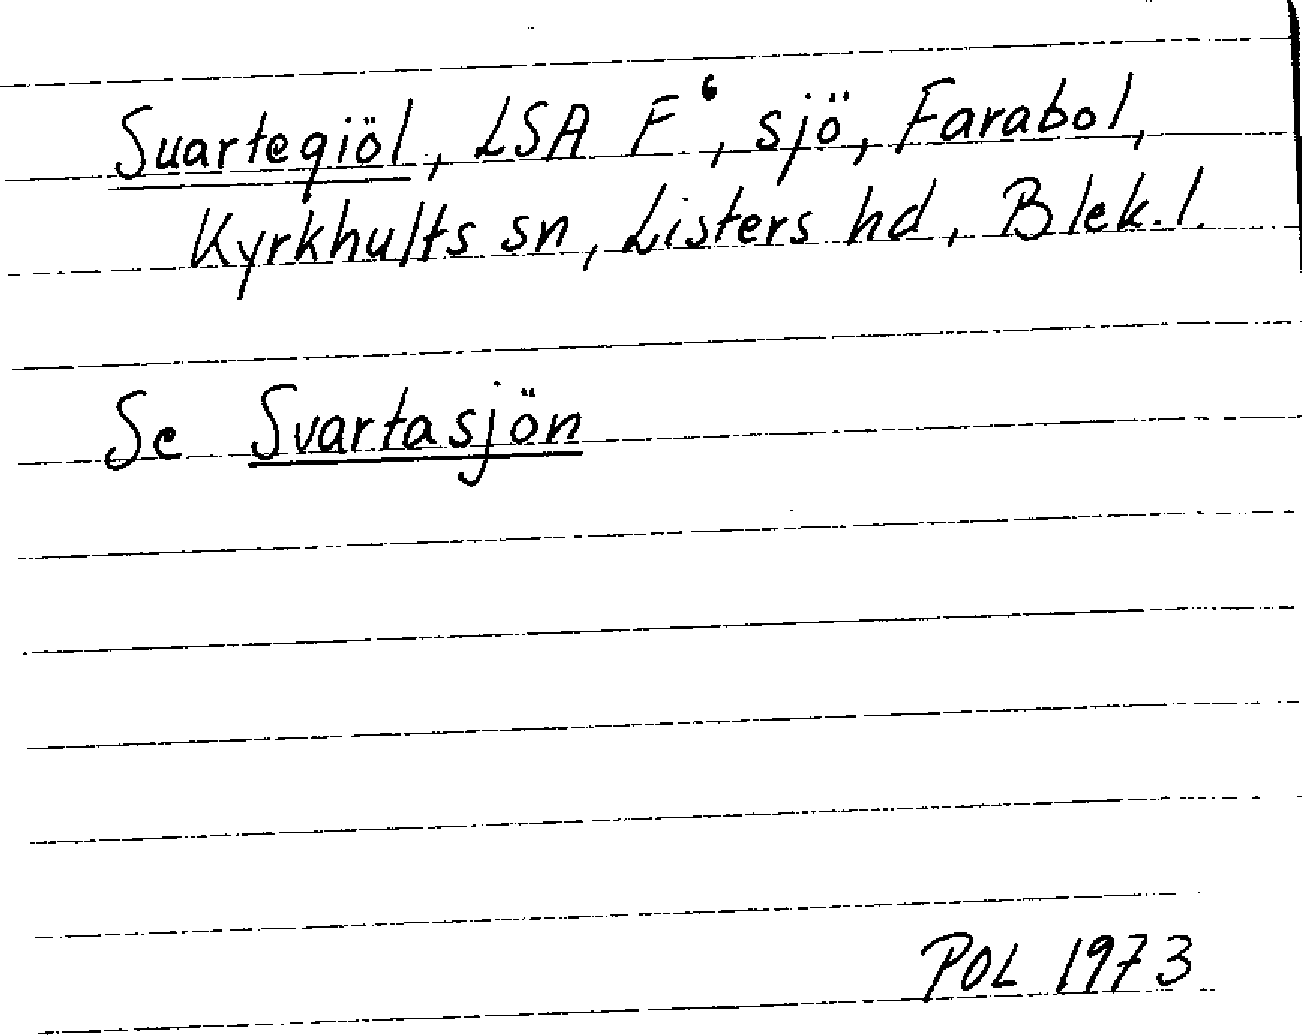 Suartegiöl, LSA F⁶, sjö, Farabol,
Kyrkhults sn, Listers hd, Blek. l.
Se Svartasjön
POL 1973